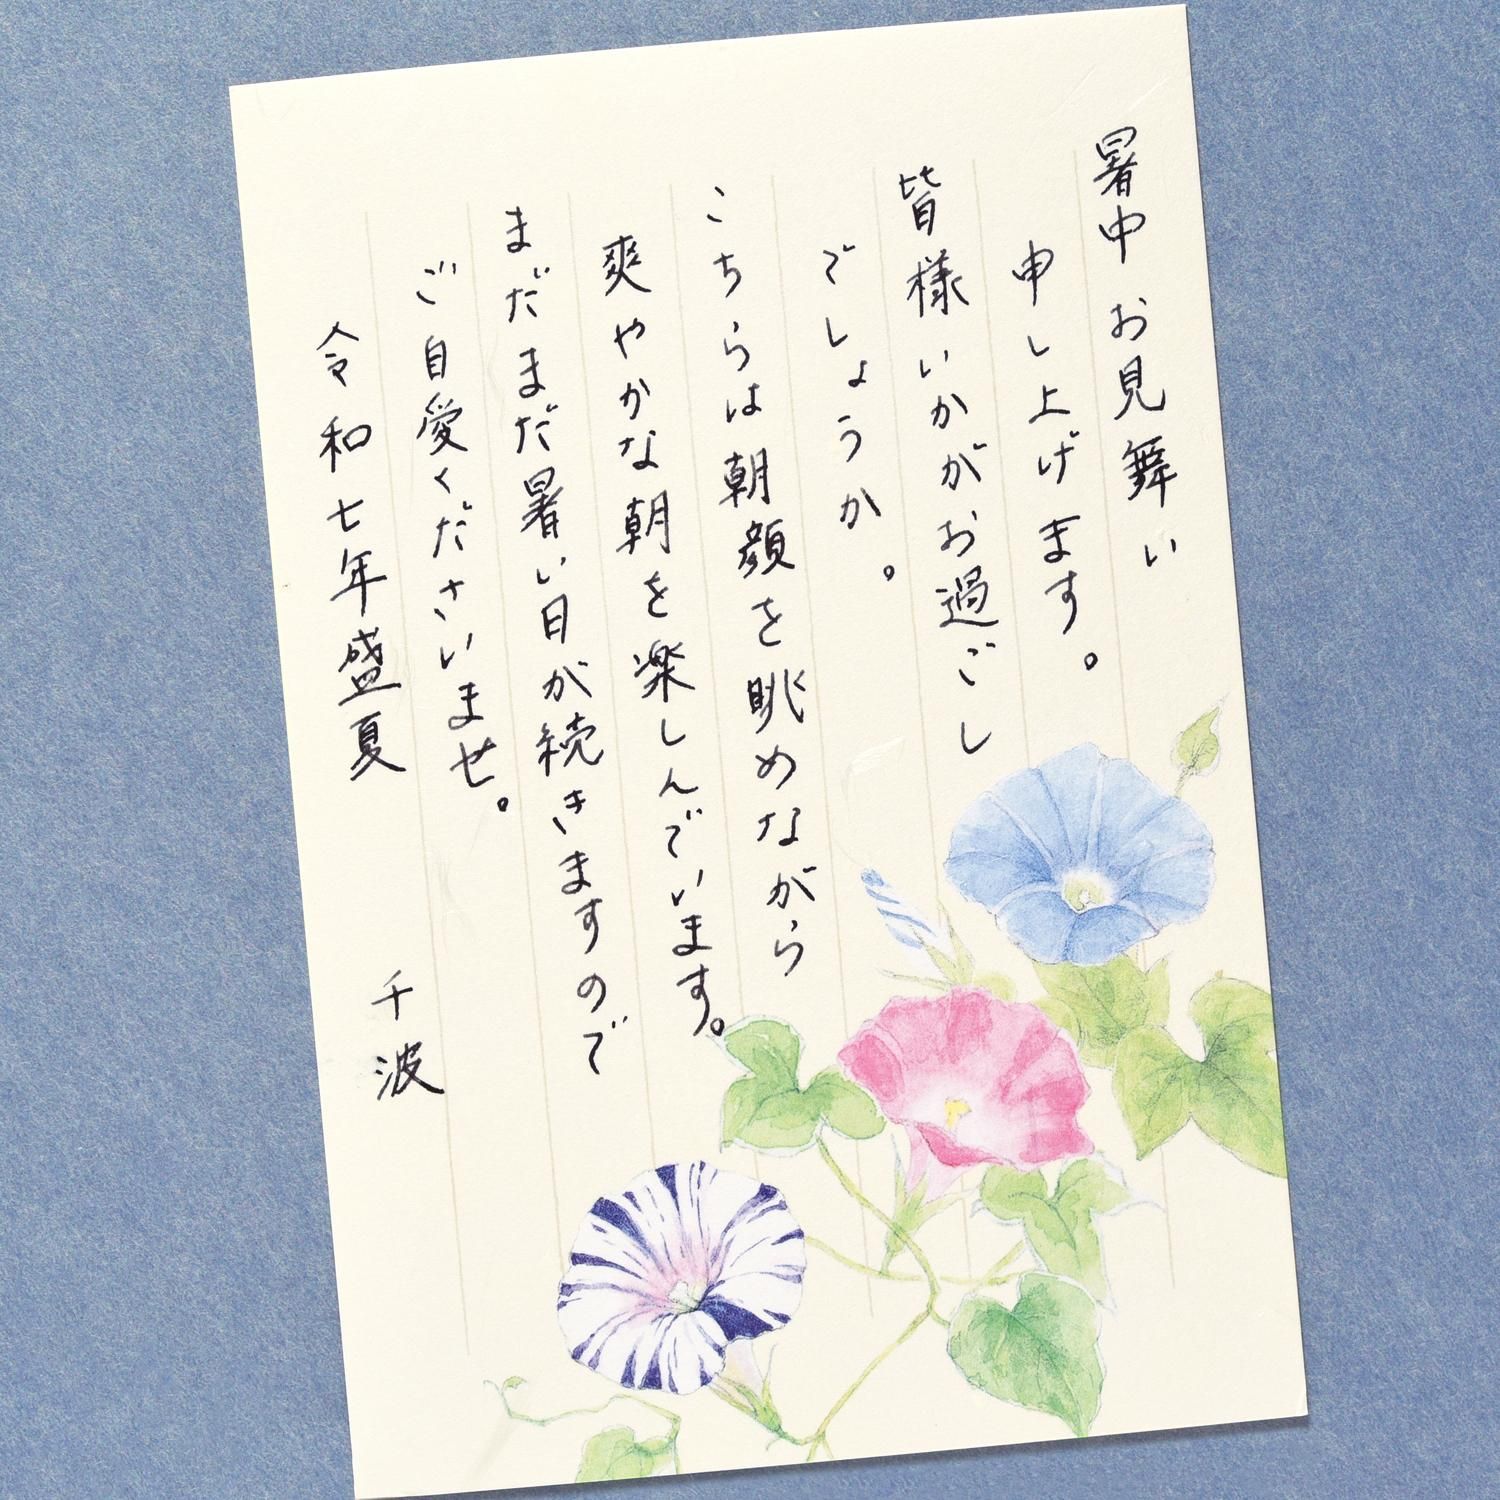 暑中お見舞い
申し上げます。
皆様いかがお過ごし
でしょうか。
こちらは朝顔を眺めながら
爽やかな朝を楽しんでいます。
まだまだ暑い日が続きますので
ご自愛くださいませ。
令和七年盛夏
千波